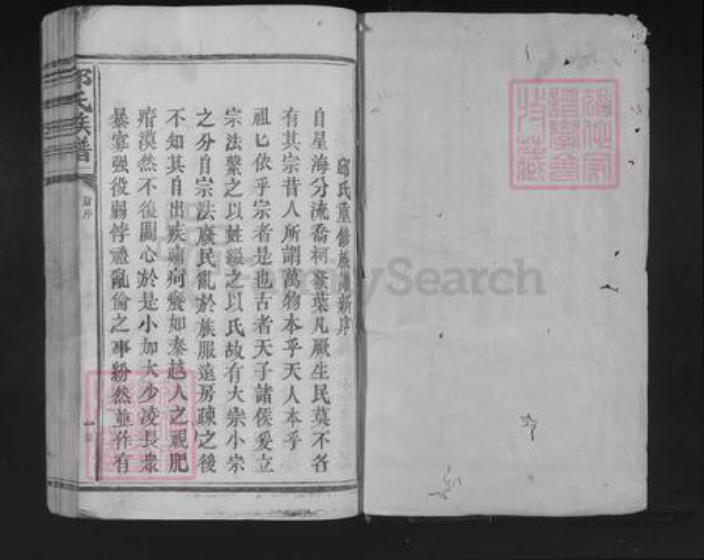 邱氏重修族譜新序
自星海分流喬柯衆葉凡厥生民莫不各
有其宗昔人所謂萬物本乎天人本乎
祖匕依乎宗者是也古者天子諸侯爰立
宗法繫之以姓綴之以氏故有大宗小宗
之分自宗法廢民亂於族服遠房疎之後
不知其自出疾痛痾癢如秦越人之視肥
瘠漠然不復關心於是小加大少凌長衆
暴寡强役弱悖禮亂倫之事紛然並作有
邱氏族譜
新序
一
FamilySearch